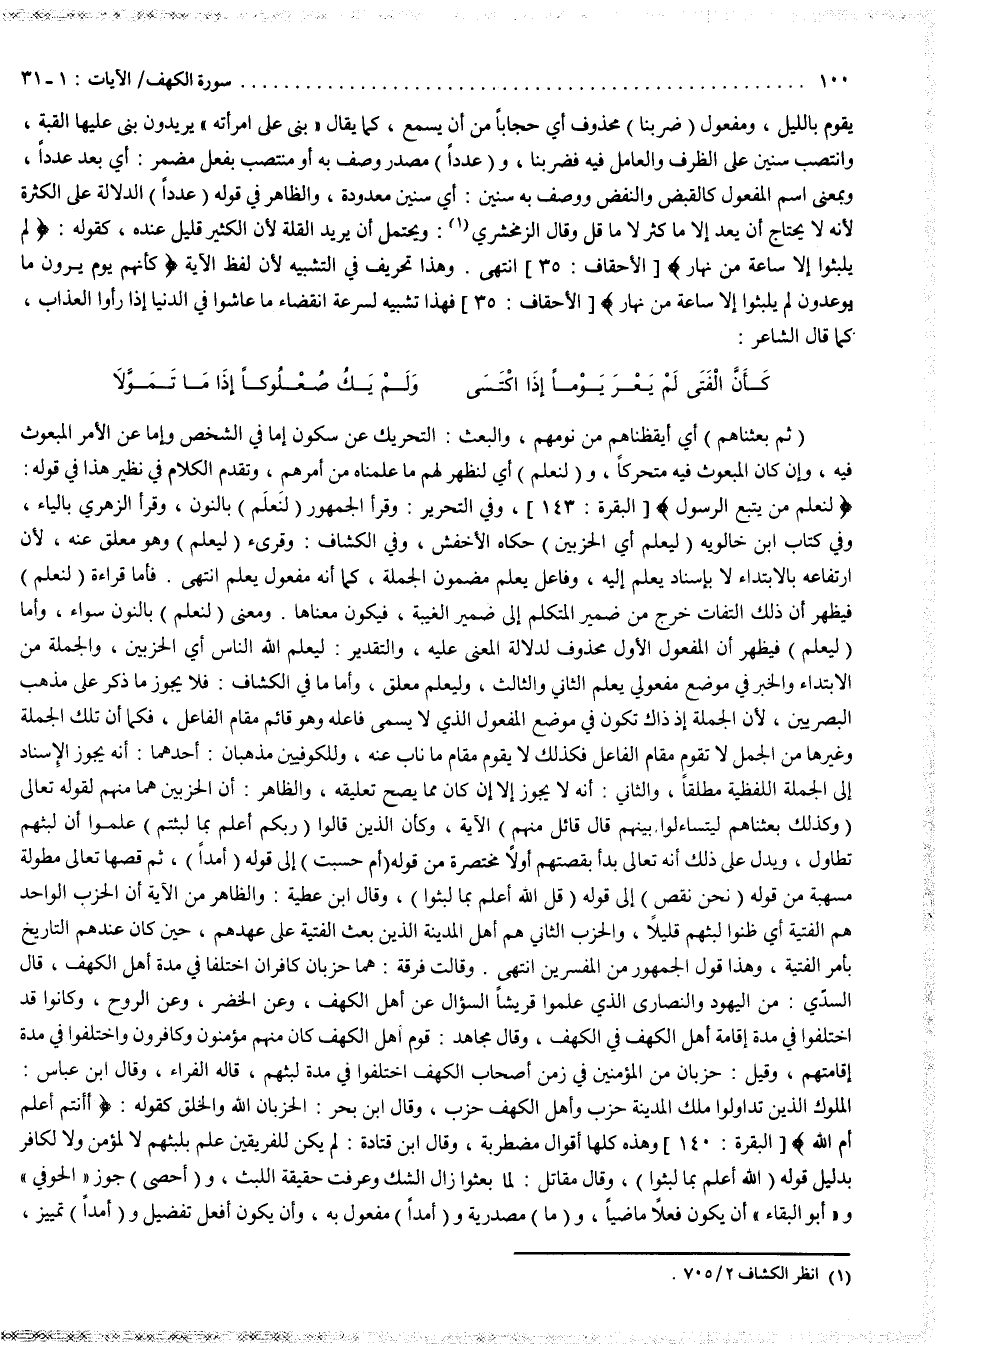 ١٠٠ ........................................ سورة الكهف/ الآيات : ١ ـ ٣١
يقوم بالليل ، ومفعول ( ضربنا ) محذوف أي حجاباً من أن يسمع ، كما يقال « بنى على امرأته » يريدون بنى عليها القبة ،
وانتصب سنين على الظرف والعامل فيه فضربنا ، و ( عدداً ) مصدر وصف به أو منتصب بفعل مضمر : أي بعد عدداً ،
وبمعنى اسم المفعول كالقبض والنفض ووصف به سنين : أي سنين معدودة ، والظاهر في قوله ( عدداً ) الدلالة على الكثرة
لأنه لا يحتاج أن يعد إلا ما كثر لا ما قل وقال الزمخشري(١) : ويحتمل أن يريد القلة لأن الكثير قليل عنده ، كقوله : ﴿ لم
يلبثوا إلا ساعة من نهار ﴾ [ الأحقاف : ٣٥ ] انتهى . وهذا تحريف في التشبيه لأن لفظ الآية ﴿ كأنهم يوم يرون ما
يوعدون لم يلبثوا إلا ساعة من نهار ﴾ [ الأحقاف : ٣٥ ] فهذا تشبيه لسرعة انقضاء ما عاشوا في الدنيا إذا رأوا العذاب ،
كما قال الشاعر :
كَأَنَّ الْفَتَى لَمْ يَعْرَ يَوْماً إذَا اكْتَسَى وَلَمْ يَكُ صُعْلُوكاً إذَا مَا تَمَوَّلَا
( ثم بعثناهم ) أي أيقظناهم من نومهم ، والبعث : التحريك عن سكون إما في الشخص وإما عن الأمر المبعوث
فيه ، وإن كان المبعوث فيه متحركاً ، و ( لنعلم ) أي لنظهر لهم ما علمناه من أمرهم ، وتقدم الكلام في نظير هذا في قوله :
﴿ لنعلم من يتبع الرسول ﴾ [ البقرة : ١٤٣ ] ، وفي التحرير : وقرأ الجمهور ( لنَعلَم ) بالنون ، وقرأ الزهري بالياء ،
وفي كتاب ابن خالويه ( ليعلم أي الحزبين ) حكاه الأخفش ، وفي الكشاف : وقرىء ( ليعلم ) وهو معلق عنه ، لأن
ارتفاعه بالابتداء لا بإسناد يعلم إليه ، وفاعل يعلم مضمون الجملة ، كما أنه مفعول يعلم انتهى . فأما قراءة ( لنعلم )
فيظهر أن ذلك التفات خرج من ضمير المتكلم إلى ضمير الغيبة ، فيكون معناها . ومعنى ( لنعلم ) بالنون سواء ، وأما
( ليعلم ) فيظهر أن المفعول الأول محذوف لدلالة المعنى عليه ، والتقدير : ليعلم الله الناس أي الحزبين ، والجملة من
الابتداء والخبر في موضع مفعولي يعلم الثاني والثالث ، وليعلم معلق ، وأما ما في الكشاف : فلا يجوز ما ذكر على مذهب
البصريين ، لأن الجملة إذ ذاك تكون في موضع المفعول الذي لا يسمى فاعله وهو قائم مقام الفاعل ، فكما أن تلك الجملة
وغيرها من الجمل لا تقوم مقام الفاعل فكذلك لا يقوم مقام ما ناب عنه ، وللكوفيين مذهبان : أحدهما : أنه يجوز الإسناد
إلى الجملة اللفظية مطلقاً ، والثاني : أنه لا يجوز إلا إن كان مما يصح تعليقه ، والظاهر : أن الحزبين هما منهم لقوله تعالى
( وكذلك بعثناهم ليتساءلوا بينهم قال قائل منهم ) الآية ، وكأن الذين قالوا ( ربكم أعلم بما لبثتم ) علموا أن لبثهم
تطاول ، ويدل على ذلك أنه تعالى بدأ بقصتهم أولاً مختصرة من قوله( أم حسبت ) إلى قوله ( أمداً ) ، ثم قصها تعالى مطولة
مسهبة من قوله ( نحن نقص ) إلى قوله ( قل الله أعلم بما لبثوا ) ، وقال ابن عطية : والظاهر من الآية أن الحزب الواحد
هم الفتية أي ظنوا لبثهم قليلاً ، والحزب الثاني هم أهل المدينة الذين بعث الفتية على عهدهم ، حين كان عندهم التاريخ
بأمر الفتية ، وهذا قول الجمهور من المفسرين انتهى . وقالت فرقة : هما حزبان كافران اختلفا في مدة أهل الكهف ، قال
السدّي : من اليهود والنصارى الذي علموا قريشاً السؤال عن أهل الكهف ، وعن الخضر ، وعن الروح ، وكانوا قد
اختلفوا في مدة إقامة أهل الكهف في الكهف ، وقال مجاهد : قوم أهل الكهف كان منهم مؤمنون وكافرون واختلفوا في مدة
إقامتهم ، وقيل : حزبان من المؤمنين في زمن أصحاب الكهف اختلفوا في مدة لبثهم ، قاله الفراء ، وقال ابن عباس :
الملوك الذين تداولوا ملك المدينة حزب وأهل الكهف حزب ، وقال ابن بحر : الحزبان الله والخلق كقوله : ﴿ أأنتم أعلم
أم الله ﴾ [ البقرة : ١٤٠ ] وهذه كلها أقوال مضطربة ، وقال ابن قتادة : لم يكن للفريقين علم بلبثهم لا لمؤمن ولا لكافر
بدليل قوله ( الله أعلم بما لبثوا ) ، وقال مقاتل : لما بعثوا زال الشك وعرفت حقيقة اللبث ، و ( أحصى ) جوز « الحوفي »
و « أبو البقاء » أن يكون فعلاً ماضياً ، و ( ما ) مصدرية و ( أمداً ) مفعول به ، وأن يكون أفعل تفضيل و ( أمداً ) تمييز ،
(١) انظر الكشاف ٧٠٥/٢ .